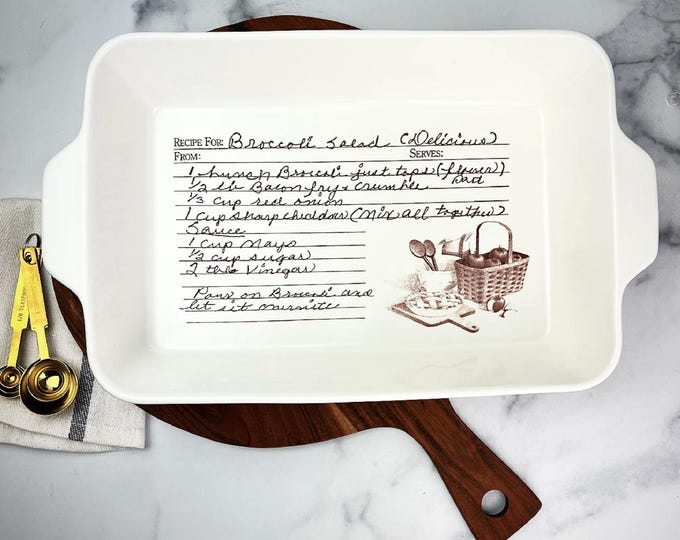 RECIPE FOR: Broccoli Salad (Delicious)
FROM: SERVES:
1 bunch Broccoli just tops (flower)
1/2 lb Bacon fry & Crumble Part
1/3 cup red onion
1 cup sharp cheddar (Mix all together)
Sauce
1 cup Mayo
1/2 cup sugar
2 tbs Vinegar
Pour on Broccoli and
let sit
1/8 TEASPOON